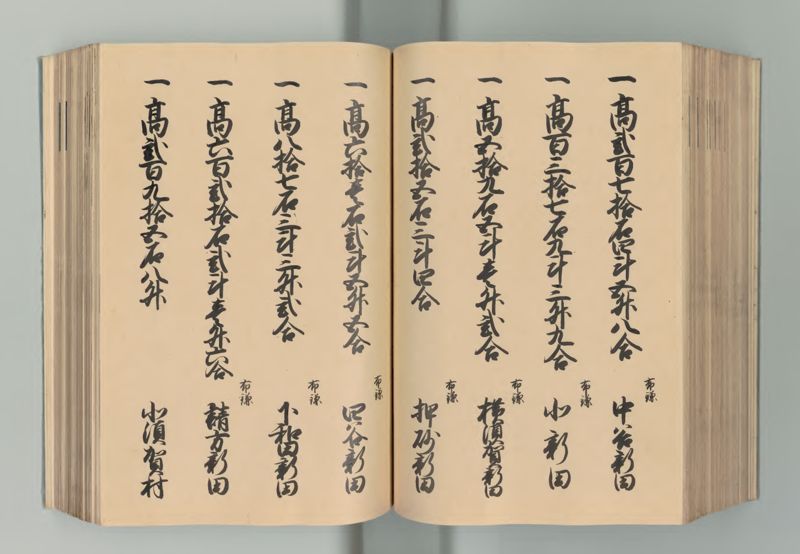 一高弐百七拾石四斗五升八合
布鎌
中谷新田
一高百三拾七石九斗三升九合
布鎌
小新田
一高五拾九石五斗壱升弐合
布鎌
横須賀新田
一高弐拾五石三斗四合
布鎌
押砂新田
一高六拾壱石弐斗五升五合
布鎌
四谷新田
一高八拾七石三斗三升弐合
布鎌
下和田新田
一高六百弐拾石弐斗壱升六合
布鎌
請方新田
一高弐百九拾五石八升
小須賀村